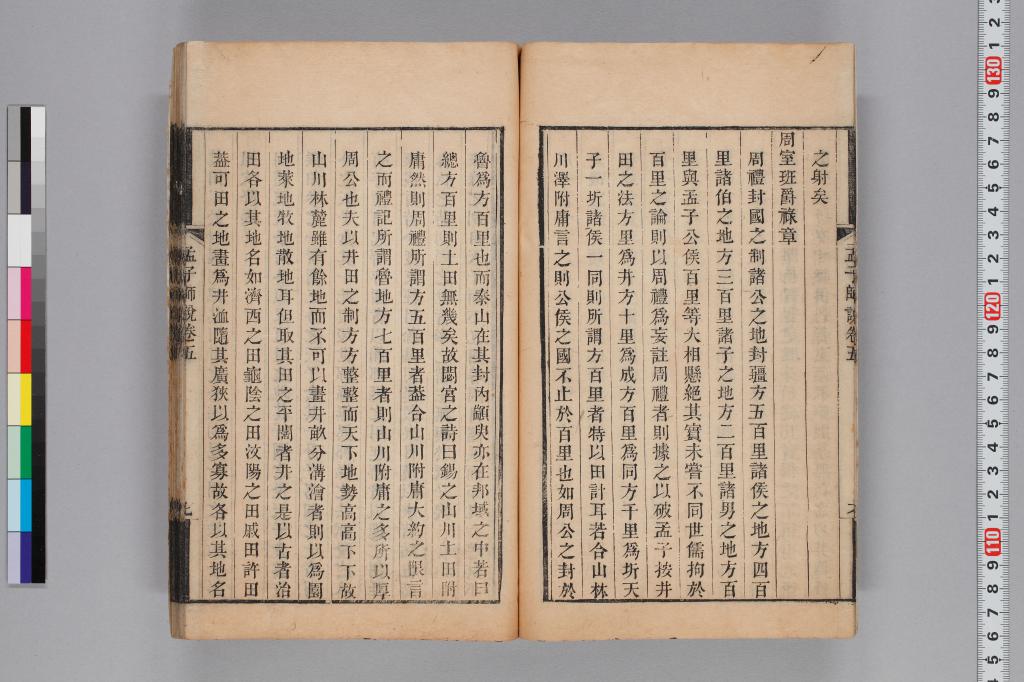 之射矣
周室班爵祿章
周禮封國之制諸公之地封疆方五百里諸侯之地方四百
里諸伯之地方三百里諸子之地方二百里諸男之地方百
里與孟子公侯百里等大相懸絕其實未嘗不同世儒拘於
百里之論則以周禮爲妄註周禮者則據之以破孟子按井
田之法方里爲井方十里爲成方百里爲同方千里爲圻天
子一圻諸侯一同則所謂方百里者特以田計耳若合山林
川澤附庸言之則公侯之國不止於百里也如周公之封於
魯爲方百里也而泰山在其封內顓臾亦在邦域之中若曰
總方百里則土田無幾矣故閟宮之詩曰錫之山川土田附
庸然則周禮所謂方五百里者葢合山川附庸大約之限言
之而禮記所謂魯地方七百里者則山川附庸之多所以厚
周公也夫以井田之制方方整整而天下地勢高高下下故
山川林麓雖有餘地而不可以畫井畝分溝澮者則以爲園
地萊地牧地散地耳但取其田之平闊者井之是以古者治
田各以其地名如濟西之田龜陰之田汶陽之田戚田許田
葢可田之地畫爲井洫隨其廣狹以爲多寡故各以其地名
孟子師說卷五
九